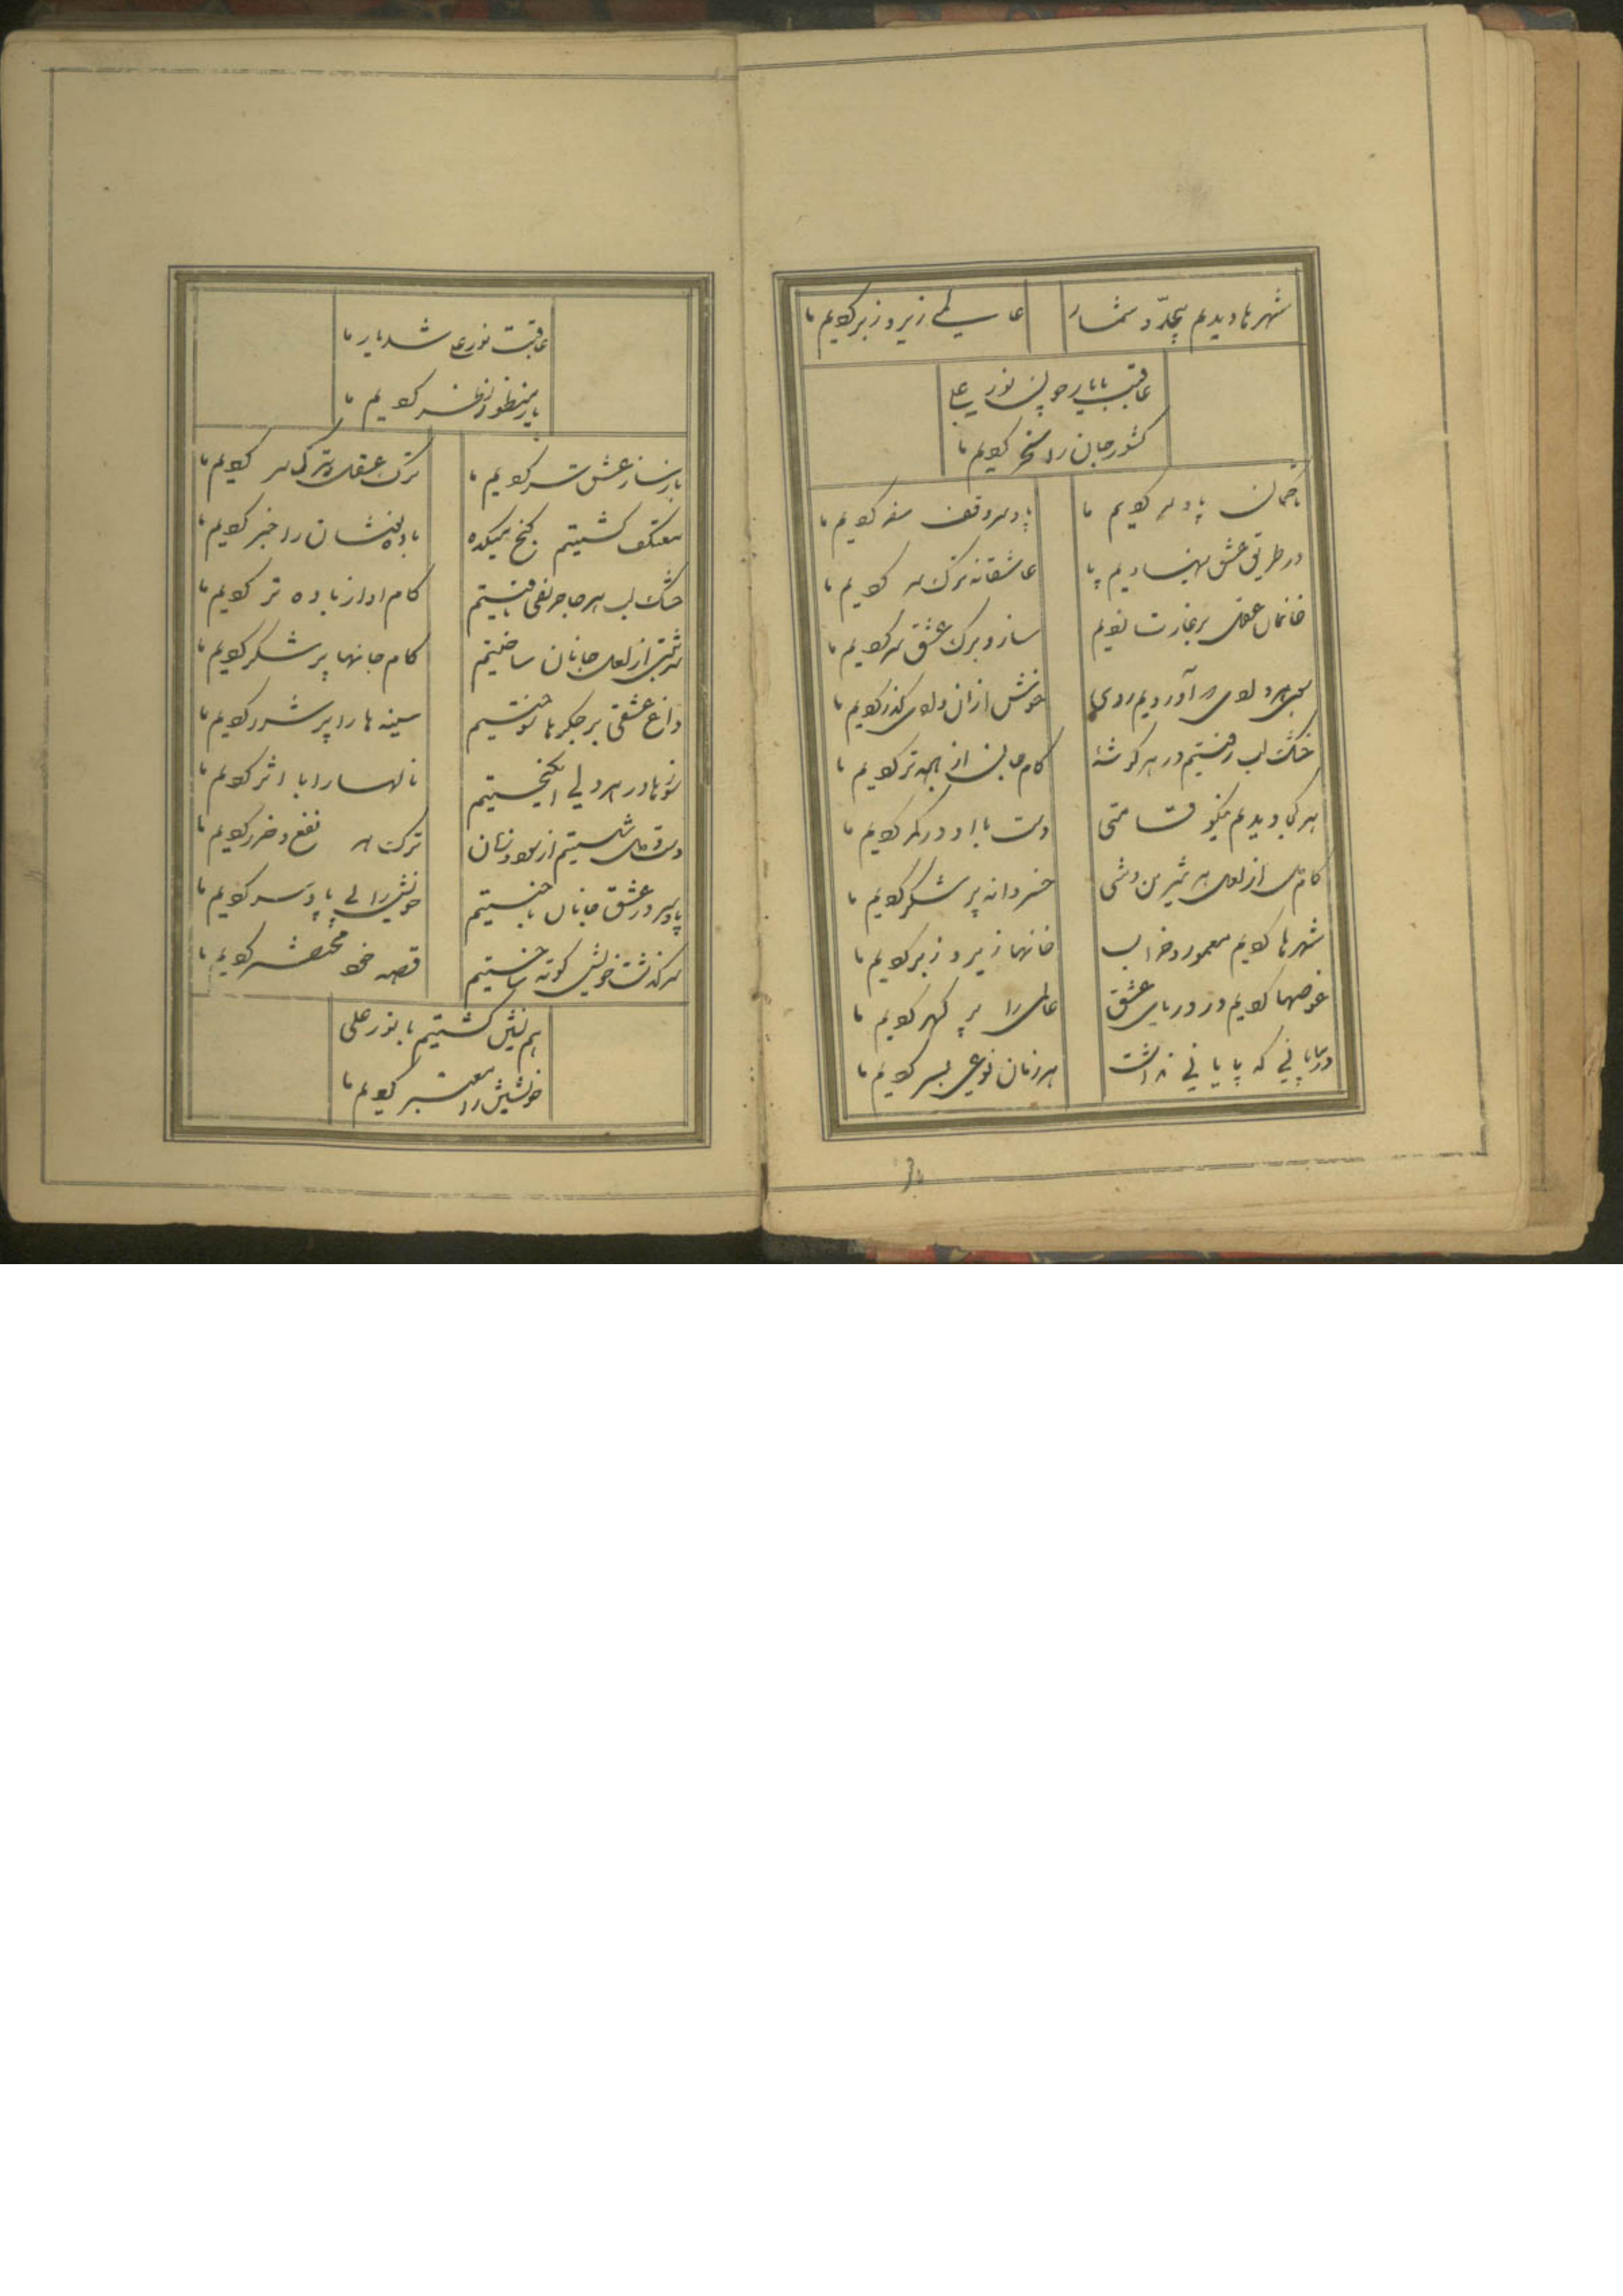 شهرها دیدیم بیحد و شمار
عالمی زیر و زبر کردیم ما
عاقبت با یاری نور علی
کشور جان را مسخر کردیم ما
تا جهان پا و سر کردیم ما
پا و سر وقف سفر کردیم ما
در طریق عشق بنهادیم پا
عاشقانه ترک سر کردیم ما
خانمان عقل بر غارت
ساز و برگ عشق سر کردیم ما
آوردیم روی
خوش از آن وادی گذر کردیم ما
خشک لب رفتیم در هر گوشه
کام جان از همه تر کردیم ما
هر کجا دیدیم نیکو قامتی
دست با او در کمر کردیم ما
کام دل از لعل هر شیرین وشی
خسروانه پر شکر کردیم ما
شهرها کردیم معمور و خراب
خانها زیر و زبر کردیم ما
غوصها کردیم در دریای عشق
عالمی را پر گهر کردیم ما
در بیابانی که پایانی نداشت
هر زمان نوعی بسر کردیم ما
عاقبت نور علی شد یار ما
یار منظور نظر کردیم ما
باز ساز عشق سر کردیم ما
ترک عقل و ترک سر کردیم ما
معتکف گشتیم کنج میکده
باده نوشان را خبر کردیم ما
خشک لب هر جا حریفی یافتیم
کام او از باده تر کردیم ما
شربتی از لعل جانان ساختیم
کام جانها پر شکر کردیم ما
داغ عشقی بر جگرها سوختیم
سینه ها را پر شرر کردیم ما
شورها در هر دلی انگیختیم
نالها را با اثر کردیم ما
دست و دل شستیم از سود و زیان
ترک هر نفع و ضرر کردیم ما
پا و سر در عشق جانان باختیم
خویش را بی پا و سر کردیم ما
سرگذشت خویش کوته ساختیم
قصه خود مختصر کردیم ما
هم نشین گشتیم با نور علی
خویشتن را معتبر کردیم ما